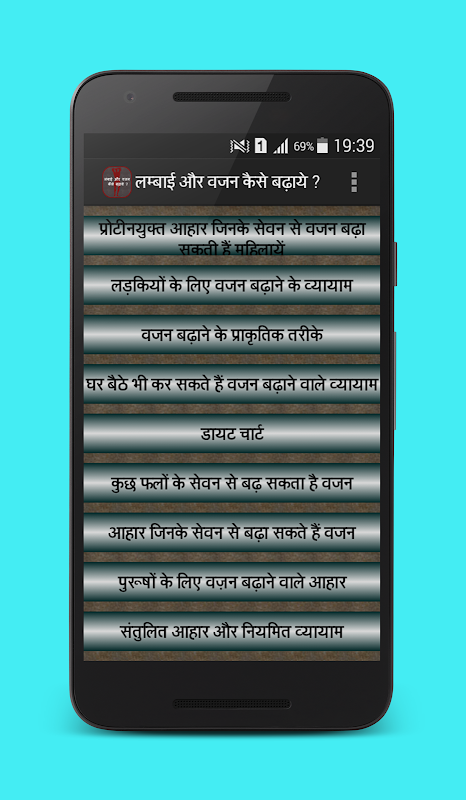 1 69% 19:39
लम्बाई और वजन कैसे बढ़ाये ?
प्रोटीनयुक्त आहार जिनके सेवन से वजन बढ़ा
सकती हैं महिलायें
लड़कियों के लिए वजन बढ़ाने के व्यायाम
वजन बढ़ाने के प्राकृतिक तरीके
घर बैठे भी कर सकते हैं वजन बढ़ाने वाले व्यायाम
डायट चार्ट
कुछ फलों के सेवन से बढ़ सकता है वजन
आहार जिनके सेवन से बढ़ा सकते हैं वजन
पुरूषों के लिए वज़न बढ़ाने वाले आहार
संतुलित आहार और नियमित व्यायाम